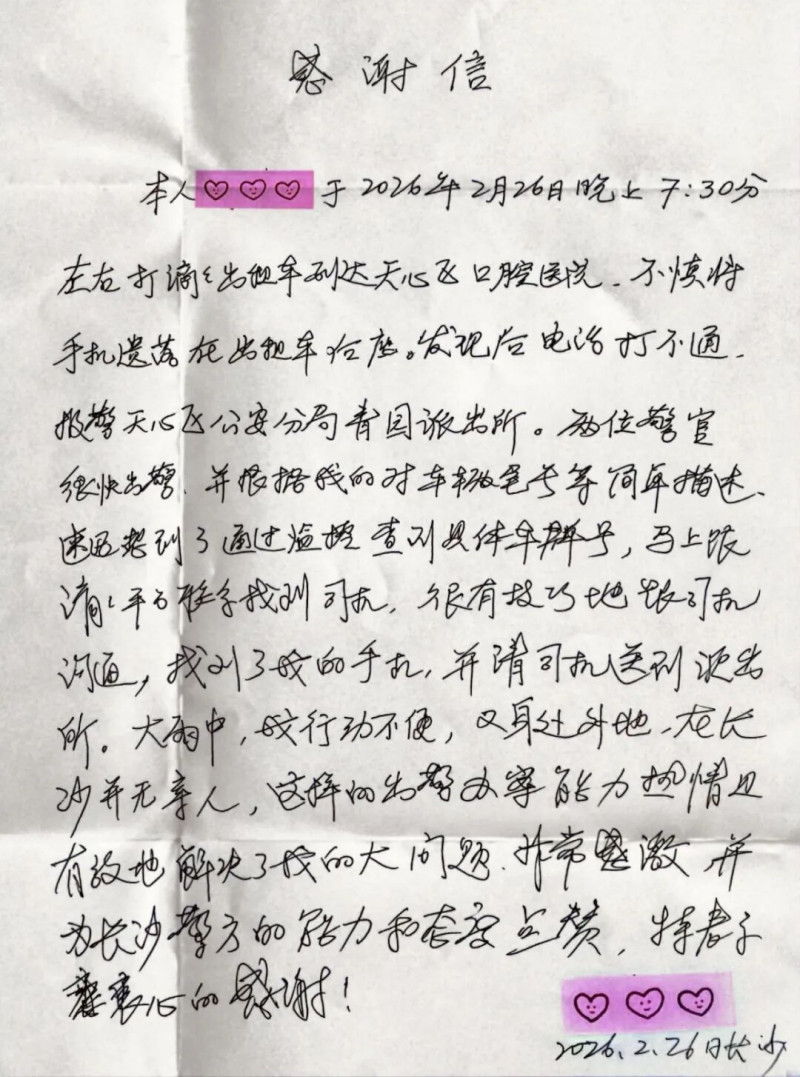 感谢信
本人 于2026年2月26日晚上7:30分
左右打滴滴出租车到达天心区口腔医院.不慎将
手机遗落在出租车后座。发现后电话打不通.
报警天心区公安分局青园派出所。两位警官
很快出警.并根据我的对车辆尾号等简单描述.
速迅想到了通过监控查到具体车牌号,马上跟
滴滴平台联系找到司机.很有技巧地跟司机
沟通,找到了我的手机,并请司机送到派出
所。大雨中,我行动不便,又身处外地.在长
沙并无亲人,这样的出警办案能力热情且
有效地解决了我的大问题.非常感激.并
为长沙警方的能力和态度点赞,特君子
衷心的感谢!
2026.2.26日长沙